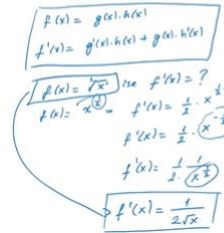 f(x) = g(x).h(x)
f'(x) = g'(x).h(x) + g(x).h'(x)
f(x) = √x ise f'(x) = ?
f(x) = x^(1/2) f'(x) = 1/2 . x^
f'(x) = 1/2 . x^-
f'(x) = 1/2 . 1/x^(1/2)
f'(x) = 1/(2√x)